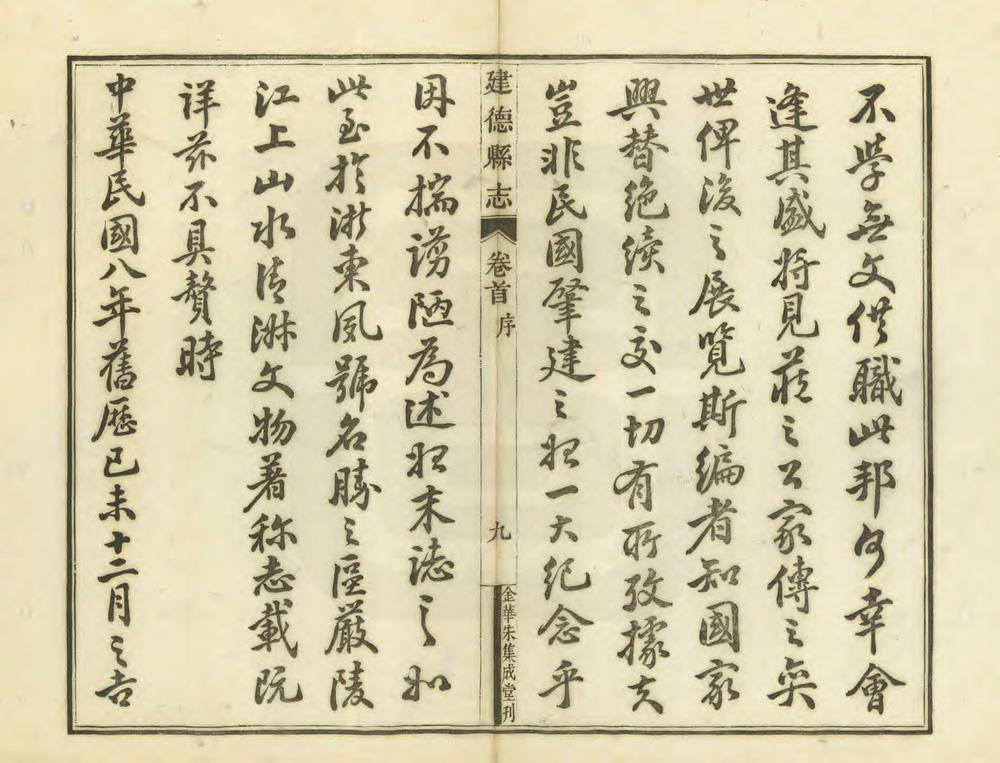 不學無文供職此邦何幸會
逢其盛將見藏之公家傳之奕
世俾後之展覽斯編者知國家
興替絕續之交一切有所攷據夫
豈非民國肇建之始一大紀念乎
建德縣志 卷首 序 九 金華朱集成堂刊
因不揣謭陋為述始末誌之如
此至於浙東夙號名勝之區嚴陵
江上山水清淑文物著稱志載既
詳茲不具贅時
中華民國八年舊歷己未十二月之吉